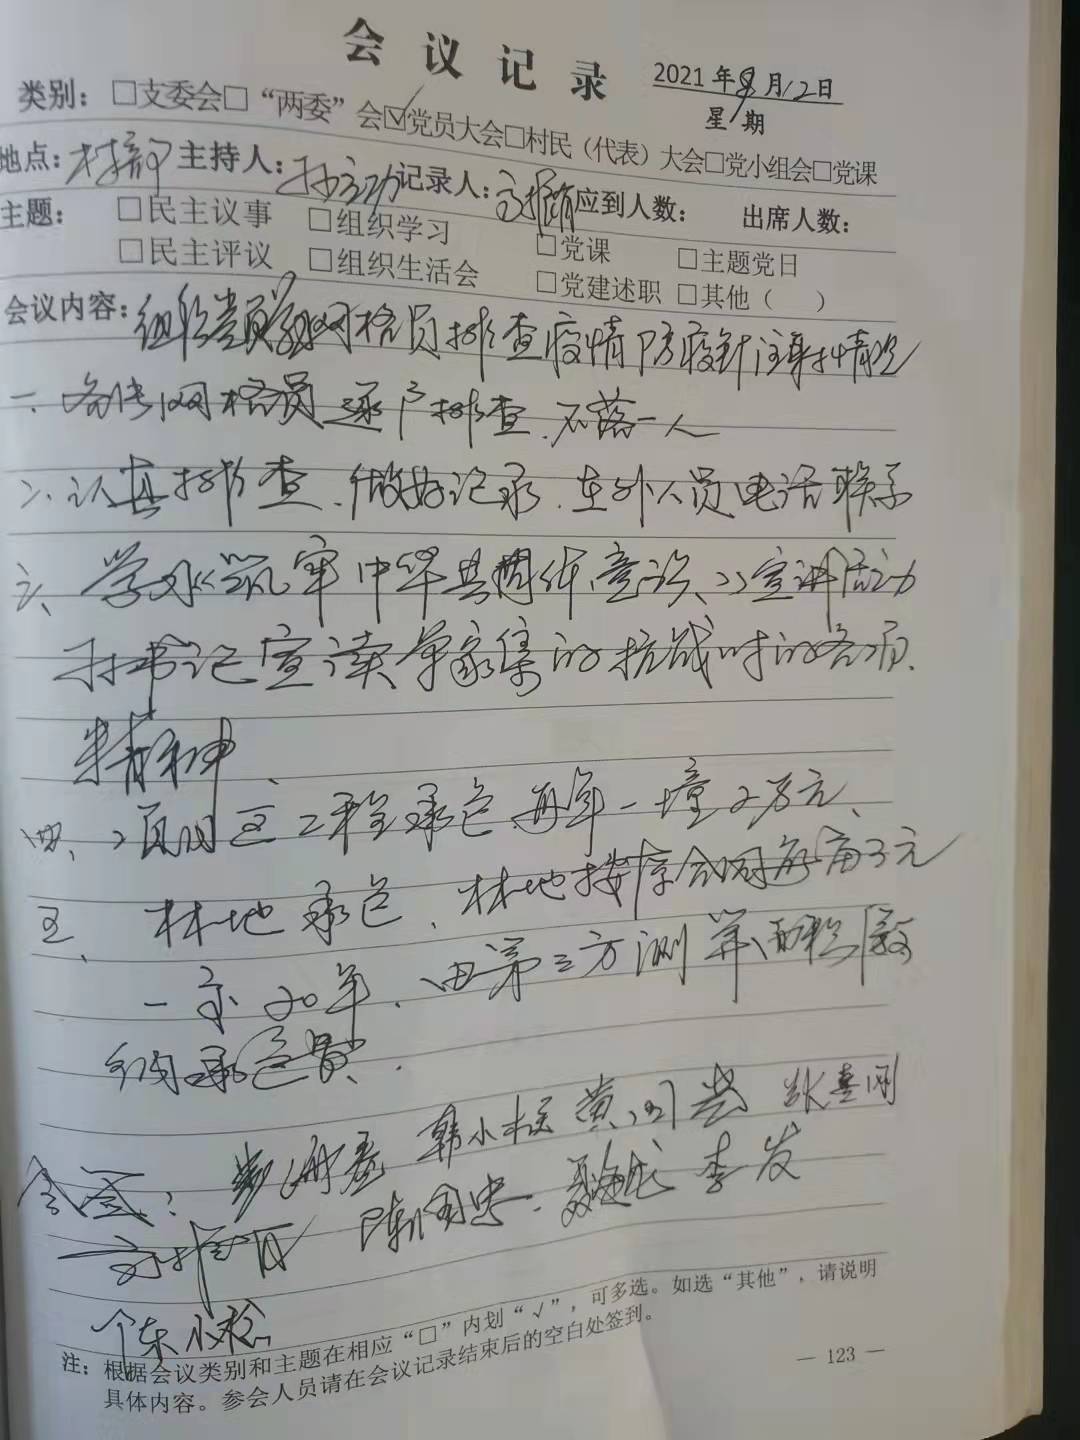 会议记录
2021年8月12日
星期
类别：□支委会□“两委”会☑党员大会□村民（代表）大会□党小组会□党课
地点：村部 主持人：孙立功 记录人： 应到人数： 出席人数：
主题：□民主议事 □组织学习 □党课 □主题党日
□民主评议 □组织生活会 □党建述职 □其他（ ）
会议内容：组织党员 网格员排查疫情防疫针注射情况
一、各片网格员逐户排查、不落一人
二、认真排查、做好记录、在外人员电话联系
三、学习《筑牢中华共同体意识》宣讲活动
孙书记宣读单家集的抗战时的
精神、
四、 园区工程承包每年一幢2万元、
五、林地承包、林地按原合同每亩3元
一亩 20年、由第三方测算面积缴
纳承包费.
会签： 韩小栋 黄 张喜刚
陈国忠 李发
小松
注：根据会议类别和主题在相应“□”内划“√”，可多选。如选“其他”，请说明
具体内容。参会人员请在会议记录结束后的空白处签到。
— 123 —